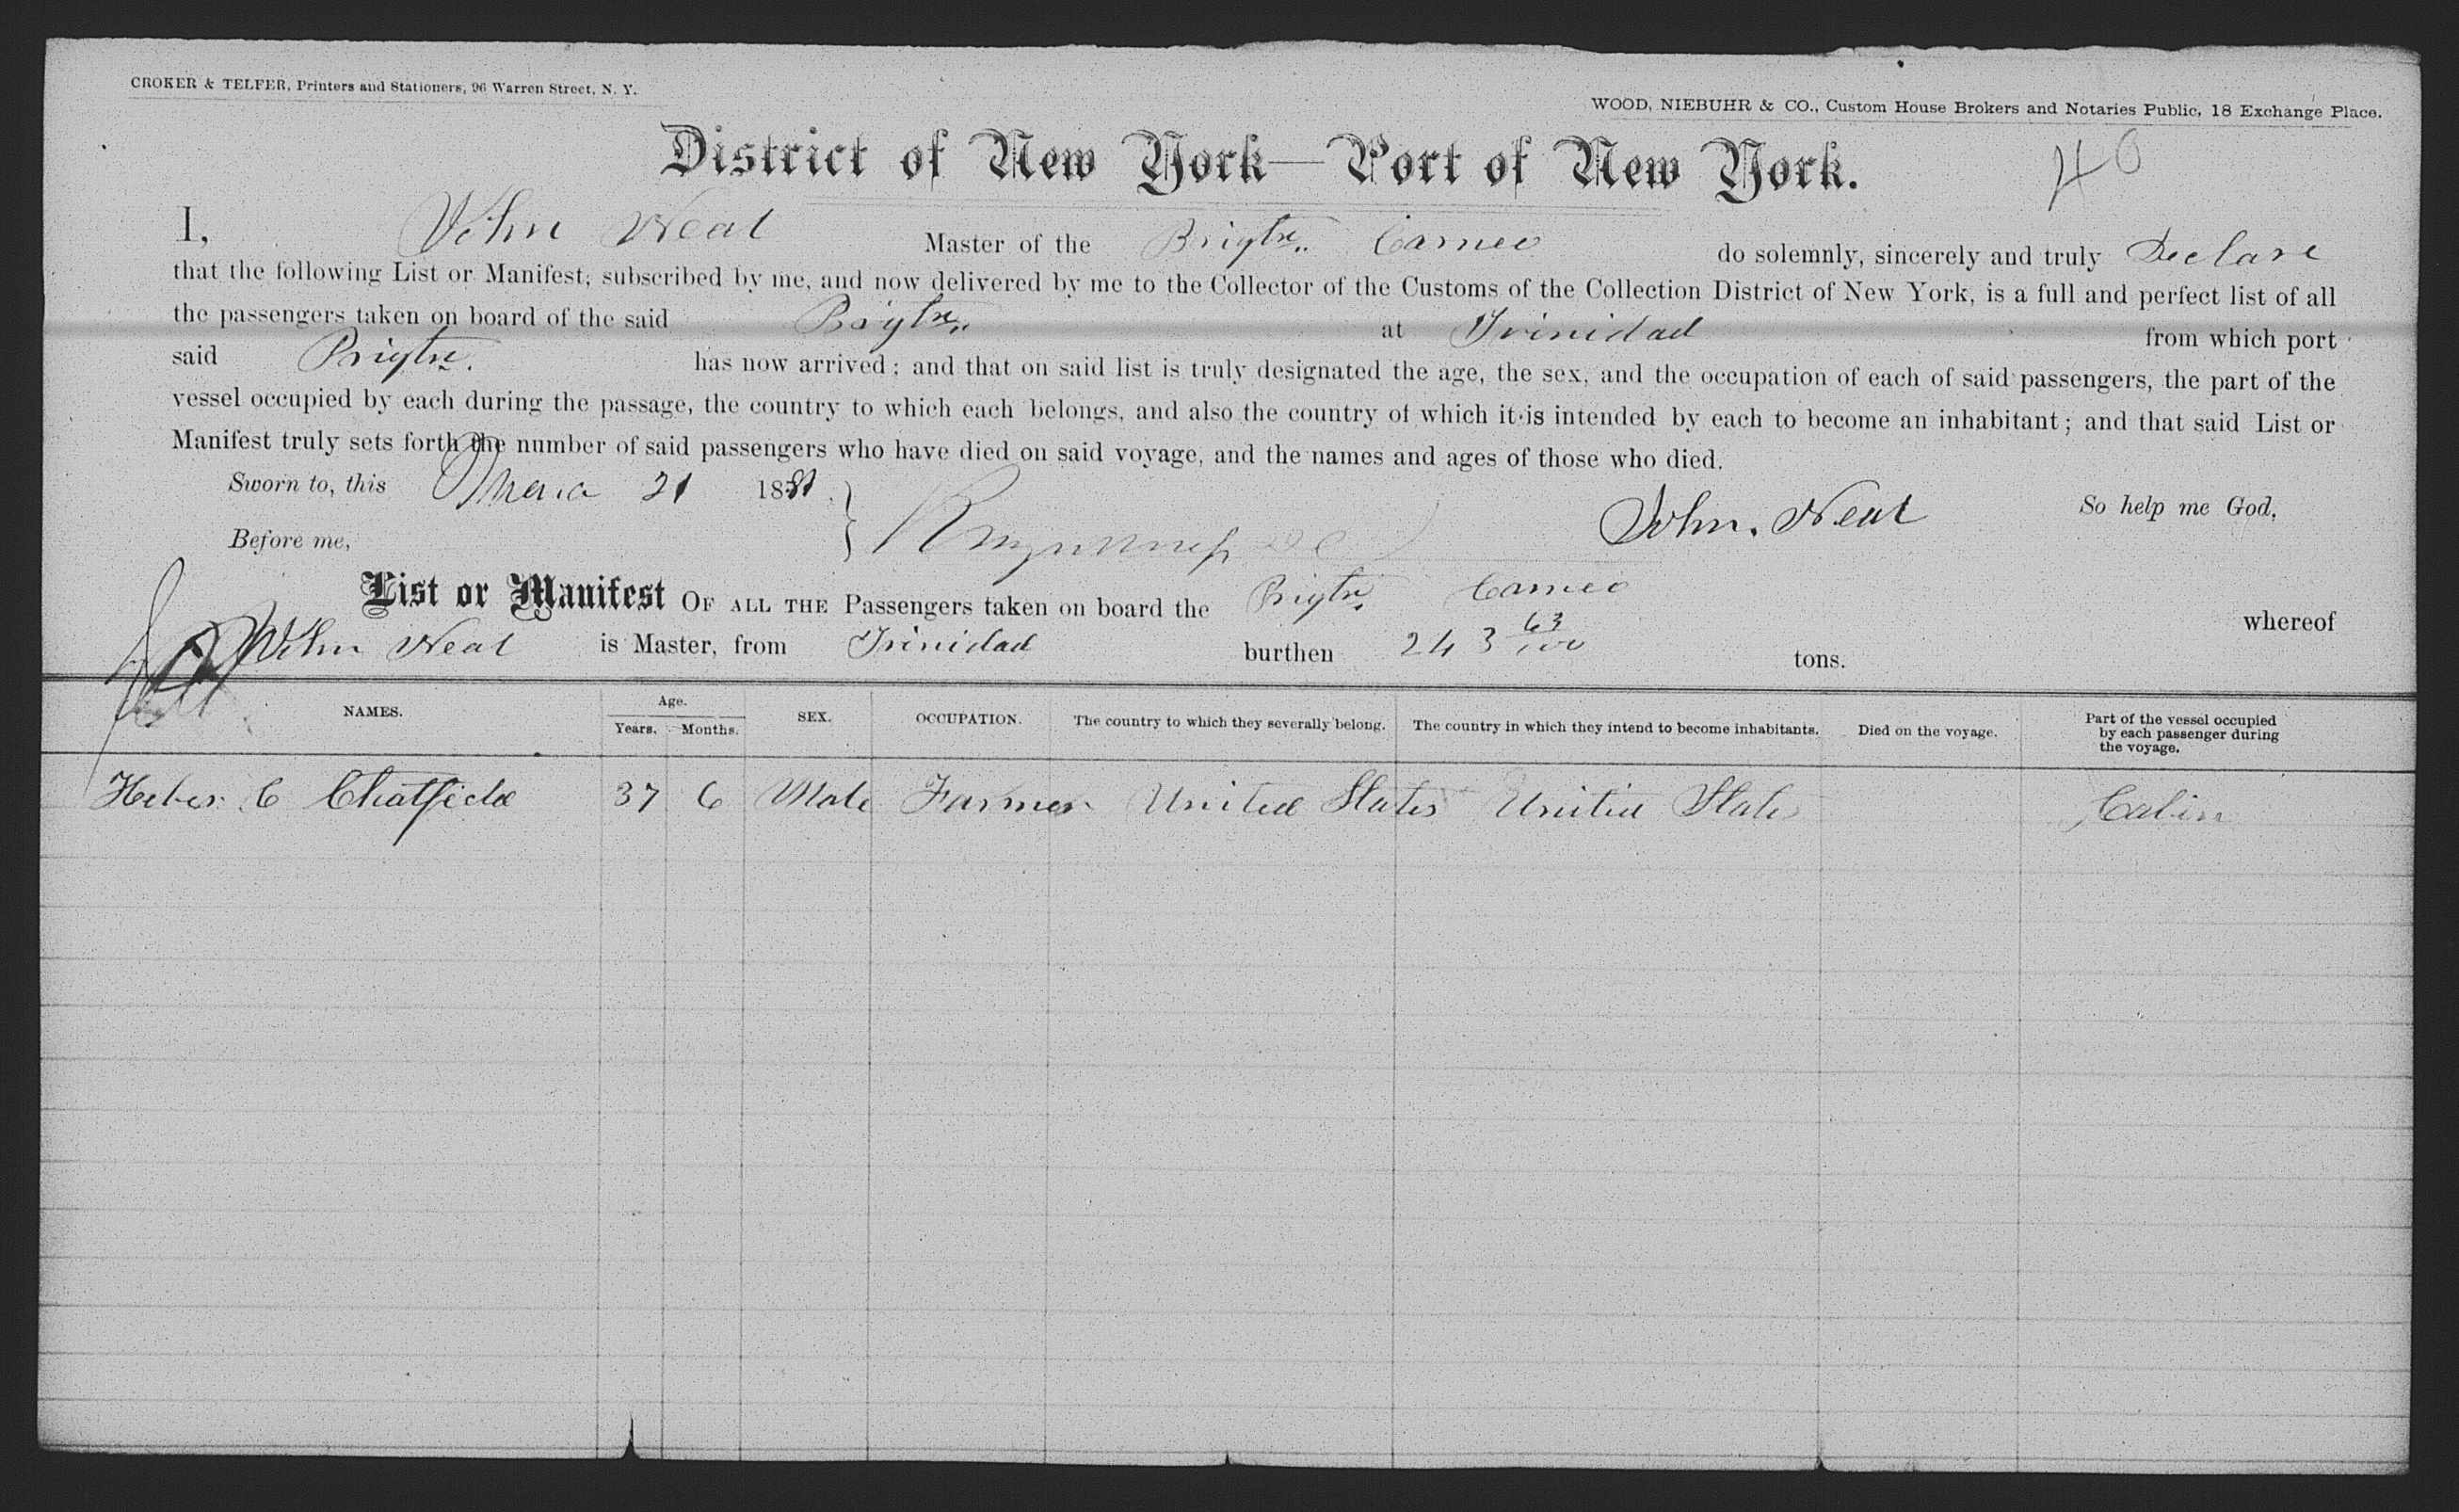 CROKER & TELFER, Printers and Stationers, 96 Warren Street, N. Y.
WOOD, NIEBUHR & CO., Custom House Brokers and Notaries Public, 18 Exchange Place.
District of New York—Port of New York.
40
I, John Neal Master of the Brigtn. Cameo do solemnly, sincerely and truly Declare
that the following List or Manifest, subscribed by me, and now delivered by me to the Collector of the Customs of the Collection District of New York, is a full and perfect list of all
the passengers taken on board of the said Brigtn. at Trinidad from which port
said Brigtn. has now arrived; and that on said list is truly designated the age, the sex, and the occupation of each of said passengers, the part of the
vessel occupied by each during the passage, the country to which each belongs, and also the country of which it is intended by each to become an inhabitant; and that said List or
Manifest truly sets forth the number of said passengers who have died on said voyage, and the names and ages of those who died.
Sworn to, this 21 1881. John. Neal So help me God,
Before me,
List or Manifest OF ALL THE Passengers taken on board the Brigtn. Cameo whereof
John Neal is Master, from Trinidad burthen 243 63/100 tons.
NAMES. Age. Years. Months. SEX. OCCUPATION. The country to which they severally belong. The country in which they intend to become inhabitants. Died on the voyage. Part of the vessel occupied by each passenger during the voyage.
Heber C Chatfield 37 6 Male Farmer United States United States Cabin